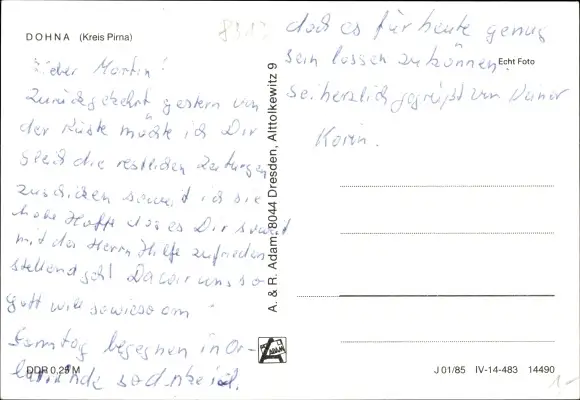 DOHNA (Kreis Pirna)
Lieber Martin!
Zurückgekehrt gestern von
der Küste möchte ich Dir
gleich die restlichen Zeitungen
zuschicken soweit ich sie
habe Hoffe das es Dir soweit
mit des Herrn Hilfe zufrieden
stellend geht Da wir uns so
Gott will sowieso am
Samstag begegnen in
denke ich.
doch es für heute genug
sein lassen zu können.
Sei herzlich gegrüßt von
Karin.
Echt Foto
A. & R. Adam, 8044 Dresden, Alttolkewitz 9
ADAM
DDR 0,25 M
J 01/85 IV-14-483 14490
1,-